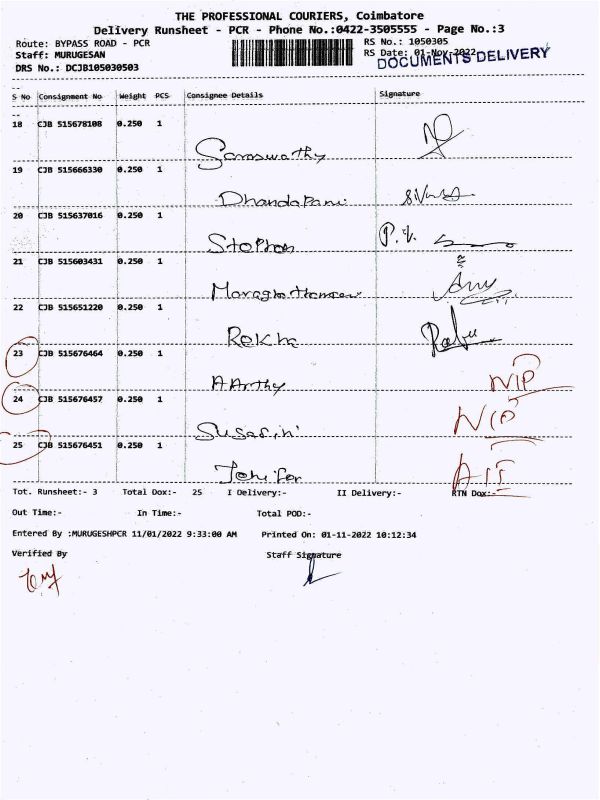 THE PROFESSIONAL COURIERS, Coimbatore
Delivery Runsheet - PCR - Phone No.:0422-3505555 - Page No.:3
Route: BYPASS ROAD - PCR
RS No.: 1050305
Staff: MURUGESAN
RS Date: 01-Nov-2022
DOCUMENTS DELIVERY
DRS No.: DCJB105030503
S No Consignment No Weight PCS Consignee Details Signature
18 CJB 515678108 0.250 1
Saraswathy
19 CJB 515666330 0.250 1
Dhandapani
20 CJB 515637016 0.250 1
Stephen
21 CJB 515603431 0.250 1
22 CJB 515651220 0.250 1
Rekha
23 CJB 515676464 0.250 1
AArthy
NIP
24 CJB 515676457 0.250 1
NIP
25 CJB 515676451 0.250 1
Tot. Runsheet:- 3 Total Dox:- 25 I Delivery:- II Delivery:- RTN Dox:-
Out Time:- In Time:- Total POD:-
Entered By :MURUGESHPCR 11/01/2022 9:33:00 AM Printed On: 01-11-2022 10:12:34
Verified By Staff Signature